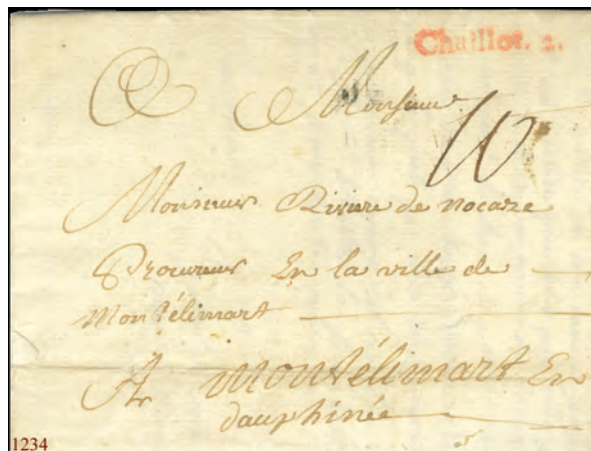 Chaillot. 2.
A Monsieur
10
Monsieur Riviere de nocaze
Procureur En la ville de
Montélimart
A Montélimart En
dauphinée
1234